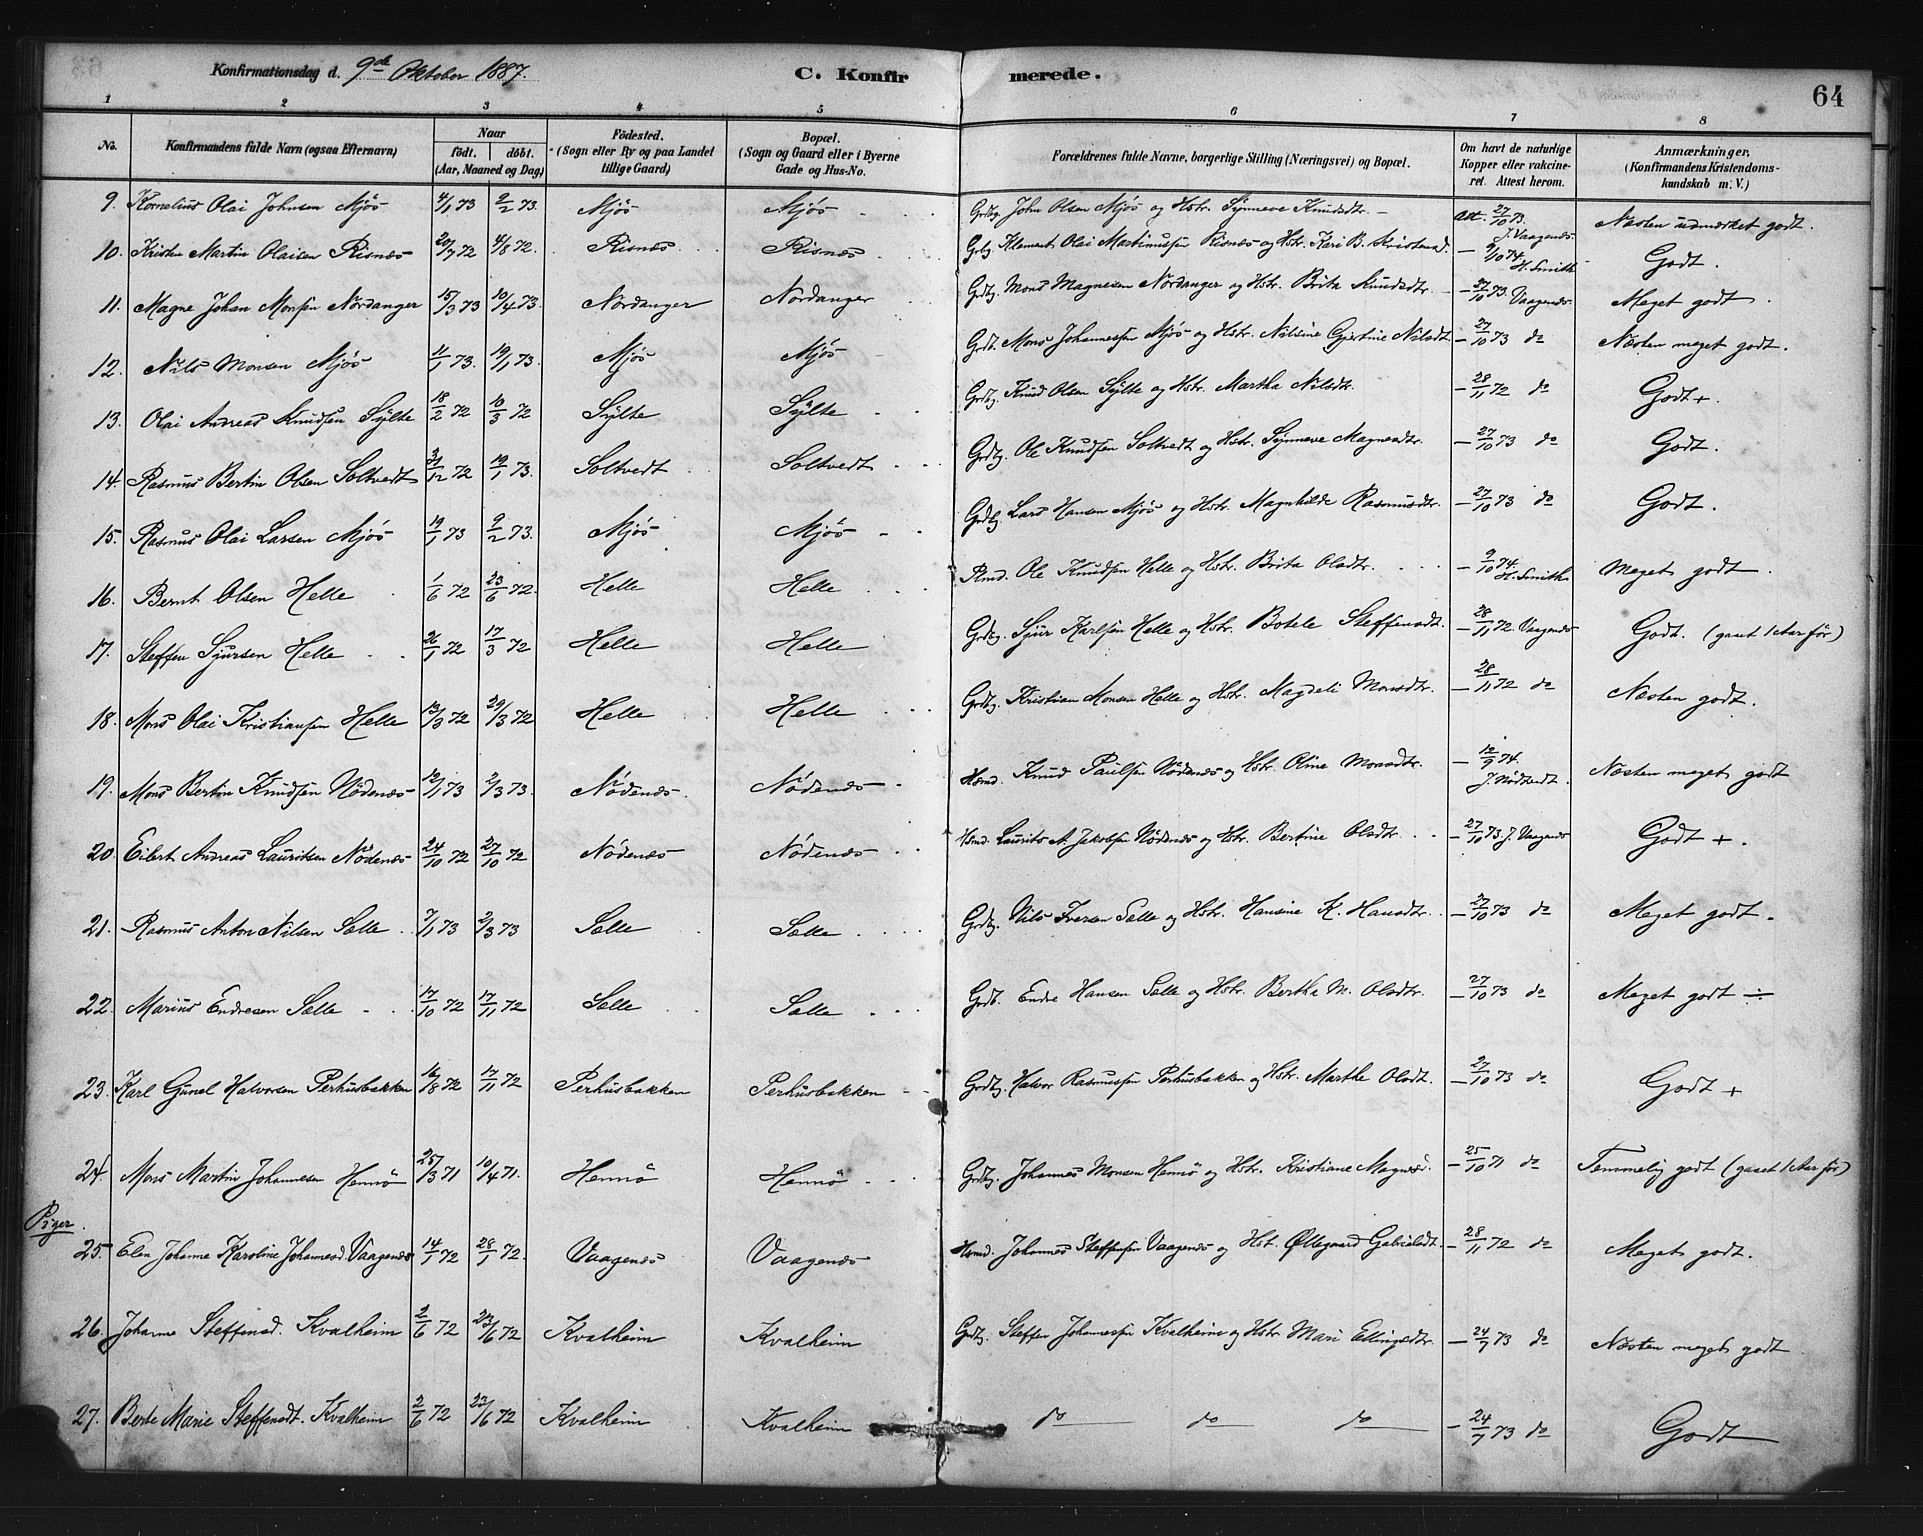 Konfirmationsdag d. 9de Oktober 1887. C. Konfirmerede. 64
1 2 3 4 5 6 7 8
No. Konfirmandens fulde Navn (ogsaa Efternavn) Naar født. døbt. (Aar, Maaned og Dag) Fødested. (Sogn eller By og paa Landet tillige Gaard) Bopæl. (Sogn og Gaard eller i Byerne Gade og Hus-No. Forældrenes fulde Navne, borgerlige Stilling (Næringsvei) og Bopæl. Om havt de naturlige Kopper eller vakcineret. Attest herom. Anmærkninger. (Konfirmandens Kristendomskundskab m. V.)
9. Kornelius Olai Johnsen Mjös 4/1 73 9/2 73. Mjös Mjös Grdbg. John Olsen Mjös og Hstr. Synneve Knudsdtr. att. 27/10 73. J. Vaagenæs Næsten udmærket godt.
10. Kristen Martin Olaisen Risnæs 20/7 72 4/8 72. Risnæs Risnæs Grbg. Klement Olai Martinussen Risnæs og Hstr. Kari B. Kristensd. - 9/10 74. H. Smith Godt.
11. Magne Johan Monsen Nordanger 15/3 73 10/4 73. Nordanger Nordanger Grdbg. Mons Magnesen Nordanger og Hstr. Brita Knudsdtr. - 27/10 73. Vaagenæs Meget godt.
12. Nils Monsen Mjös 11/1 73. 19/1 73. Mjös Mjös Grdb. Mons Johannessen Mjös og Hstr. Nilsine Gjertine Nilsdt. - 27/10 73 do Næsten meget godt.
13. Olai Andreas Knudsen Sylte 18/2 72 10/3 72 Sylte Sylte Grdbg. Knud Olsen Sylte og Hstr. Martha Nilsdtr. - 28/11 72 do Godt+.
14. Rasmus Bertin Olsen Soltvedt 31/12 72 19/1 73. Soltvedt Soltvedt Grdbg. Ole Knudsen Soltvedt og Hstr. Synneve Magnesdtr. - 27/10 73 do Godt.
15. Rasmus Olai Larsen Mjös 19/1 73 9/2 73. Mjös Mjös Grdbg. Lars Hansen Mjös og Hstr. Magnhilde Rasmusdtr. - 27/10 73 do Godt.
16. Bernt Olsen Helle 1/6 72 23/6 72. Helle Helle Ole Knudsen Helle og Hstr. Brita Olsdtr. - 9/10 74. H. Smith Meget godt.
17. Steffen Sjursen Helle 26/1 72 17/3 72 Helle Helle Grdbg. Sjur Karlsen Helle og Hstr. Botele Steffensdt. - 28/11 72 Vaagenæs Godt. (gaaet 1 Aar för)
18. Mons Olai Kristiansen Helle 13/3 72 29/3 72 Helle Helle Grdbg. Kristian Monsen Helle og Hstr. Magdeli Monsdtr. - 28/11 72 do Næsten godt.
19. Mons Bertin Knudsen Nödenæs 12/1 73 2/3 73. Nödenæs Nödenæs Hsmd. Knud Paulsen Nödenæs og Hstr. Oline Monsdtr. - 12/9 74. Næsten meget godt
20. Eilert Andreas Lauritsen Nödenæs 24/10 72 27/10 72 Nödenæs Nödenæs Hsmd. Laurits A. Jakobsen Nödenæs og Hstr. Bertine Olsdtr. - 27/10 73. J. Vaagenæs Godt +.
21. Rasmus Anton Nilsen Sælle 7/1 73 2/3 73 Sælle Sælle Grdbg. Nils Iversen Sælle og Hstr. Hansine K. Hansdtr. - 27/10 73 do Meget godt.
22. Marius Endresen Sælle 17/10 72 17/11 72 Sælle Sælle Grdb. Endre Hansen Sælle og Hstr. Bertha M. Olsdtr. - 27/10 73 do Meget godt ÷
23. Karl Gunel Halvorsen Perhusbakken 16/8 72 17/11 72 Perhusbakken Perhusbakken Grdbg. Halvor Rasmussen Perhusbakken og Hstr. Marthe Olsdt. - 27/10 73 do Godt +
24. Mons Martin Johannesen Hennö 25/3 71 10/4 71. Hennö Hennö Grdbg. Johannes Monsen Hennö og Hstr. Kristiane Magnesd. - 25/10 71 do Temmelig godt (gaaet 1 Aar för)
Piger
25. Elen Johanne Karoline Johannesd Vaagenæs 14/1 72 28/1 72. Vaagenæs Vaagenæs Hsmd. Johannes Steffensen Vaagenæs og Hst. Øllegaard Gabrielsdt. - 28/11 72 do Meget godt.
26. Johanne Steffensd. Kvalheim 2/6 72 23/6 72 Kvalheim Kvalheim Grdbg. Steffen Johannessen Kvalheim og Hstr Mari Ellingsdtr. - 24/7 73 do Næsten meget godt
27. Berte Marie Steffensdt. Kvalheim 2/6 72 23/6 72 Kvalheim Kvalheim do do do - 24/7 73 do Godt